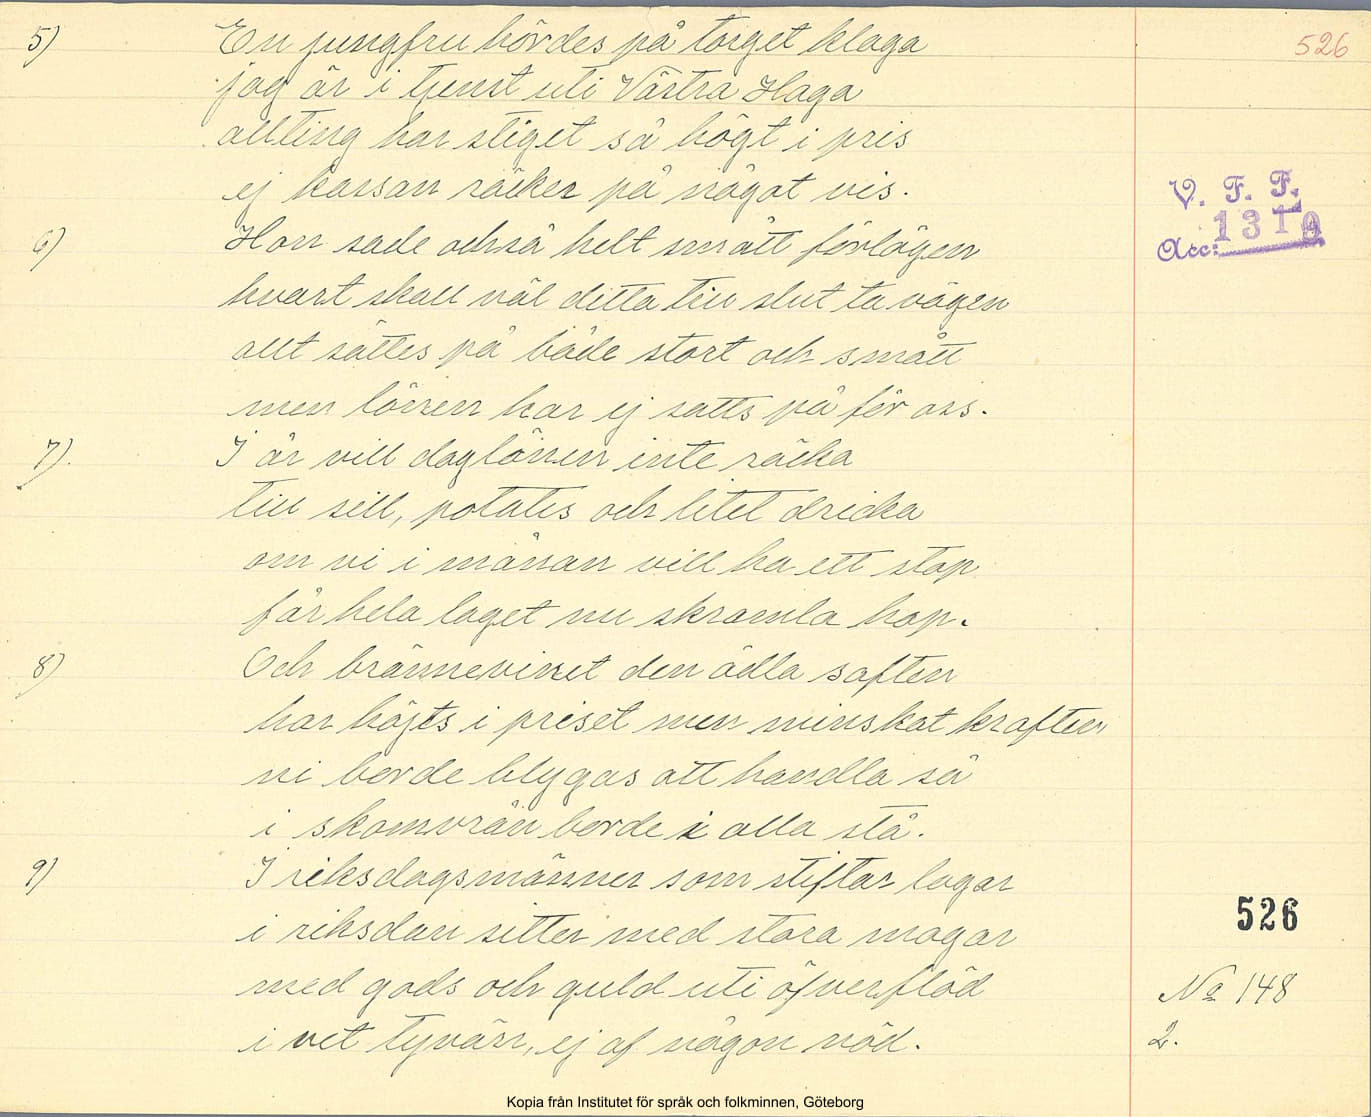 526
5) En jungfru hördes på torget klaga
jag är i tjenst uti Västra Haga
allting har stiget så högt i pris
ej kassan räcker på något vis.
V. F. F.
Acc: 1319
6) Hon sade också helt smått förlägen
hvart skall väl detta till slut ta vägen
allt sättes på både stort och smått
men lönen har ej satts på för oss.
7) I år vill daglönen inte räcka
till sill, potatis och litet dricka
om vi i månan vill ha ett stop
får hela laget nu skramla hop.
8) Och brännevinet den ädla saften
har höjts i priset men minskat kraften
ni borde blygas att handla så
i skamvrån borde i alla stå.
9) I riksdagsmänner som stiftar lagar
i riksdan sitter med stora magar
med gods och guld uti öfverflöd
i vet tyvärr, ej af någon nöd.
526
No 148
2.
Kopia från Institutet för språk och folkminnen, Göteborg